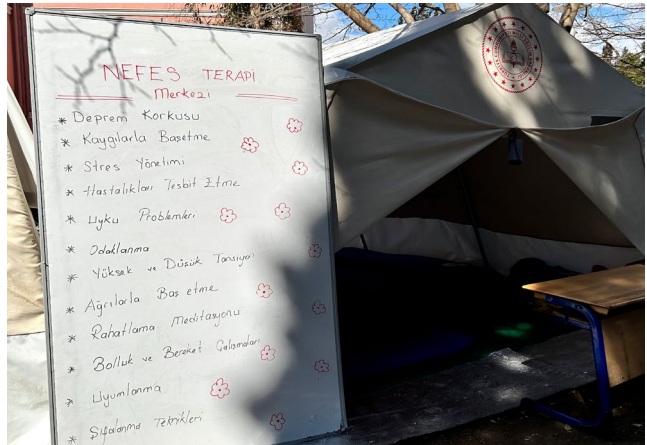 NEFES TERAPİ
Merkezi
* Deprem Korkusu
* Kaygılarla Başetme
* Stres Yönetimi
* Hastalıkları Tesbit Etme
* Uyku Problemleri
* Odaklanma
* Yüksek ve Düşük Tansiyon
* Ağrılarla Baş etme
* Rahatlama Meditasyonu
* Bolluk ve Bereket Çalışmaları
* Uyumlanma
* Şifalanma Teknikleri